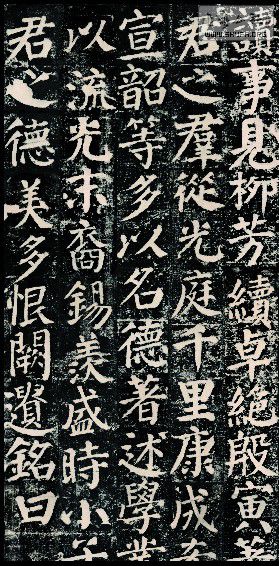 事見柳芳續卓絕殷寅著
君之羣從光庭千里康成希
宣韶等多以名德著述學業
以流光末裔錫羨盛時小子
君之德美多恨闕遺銘曰